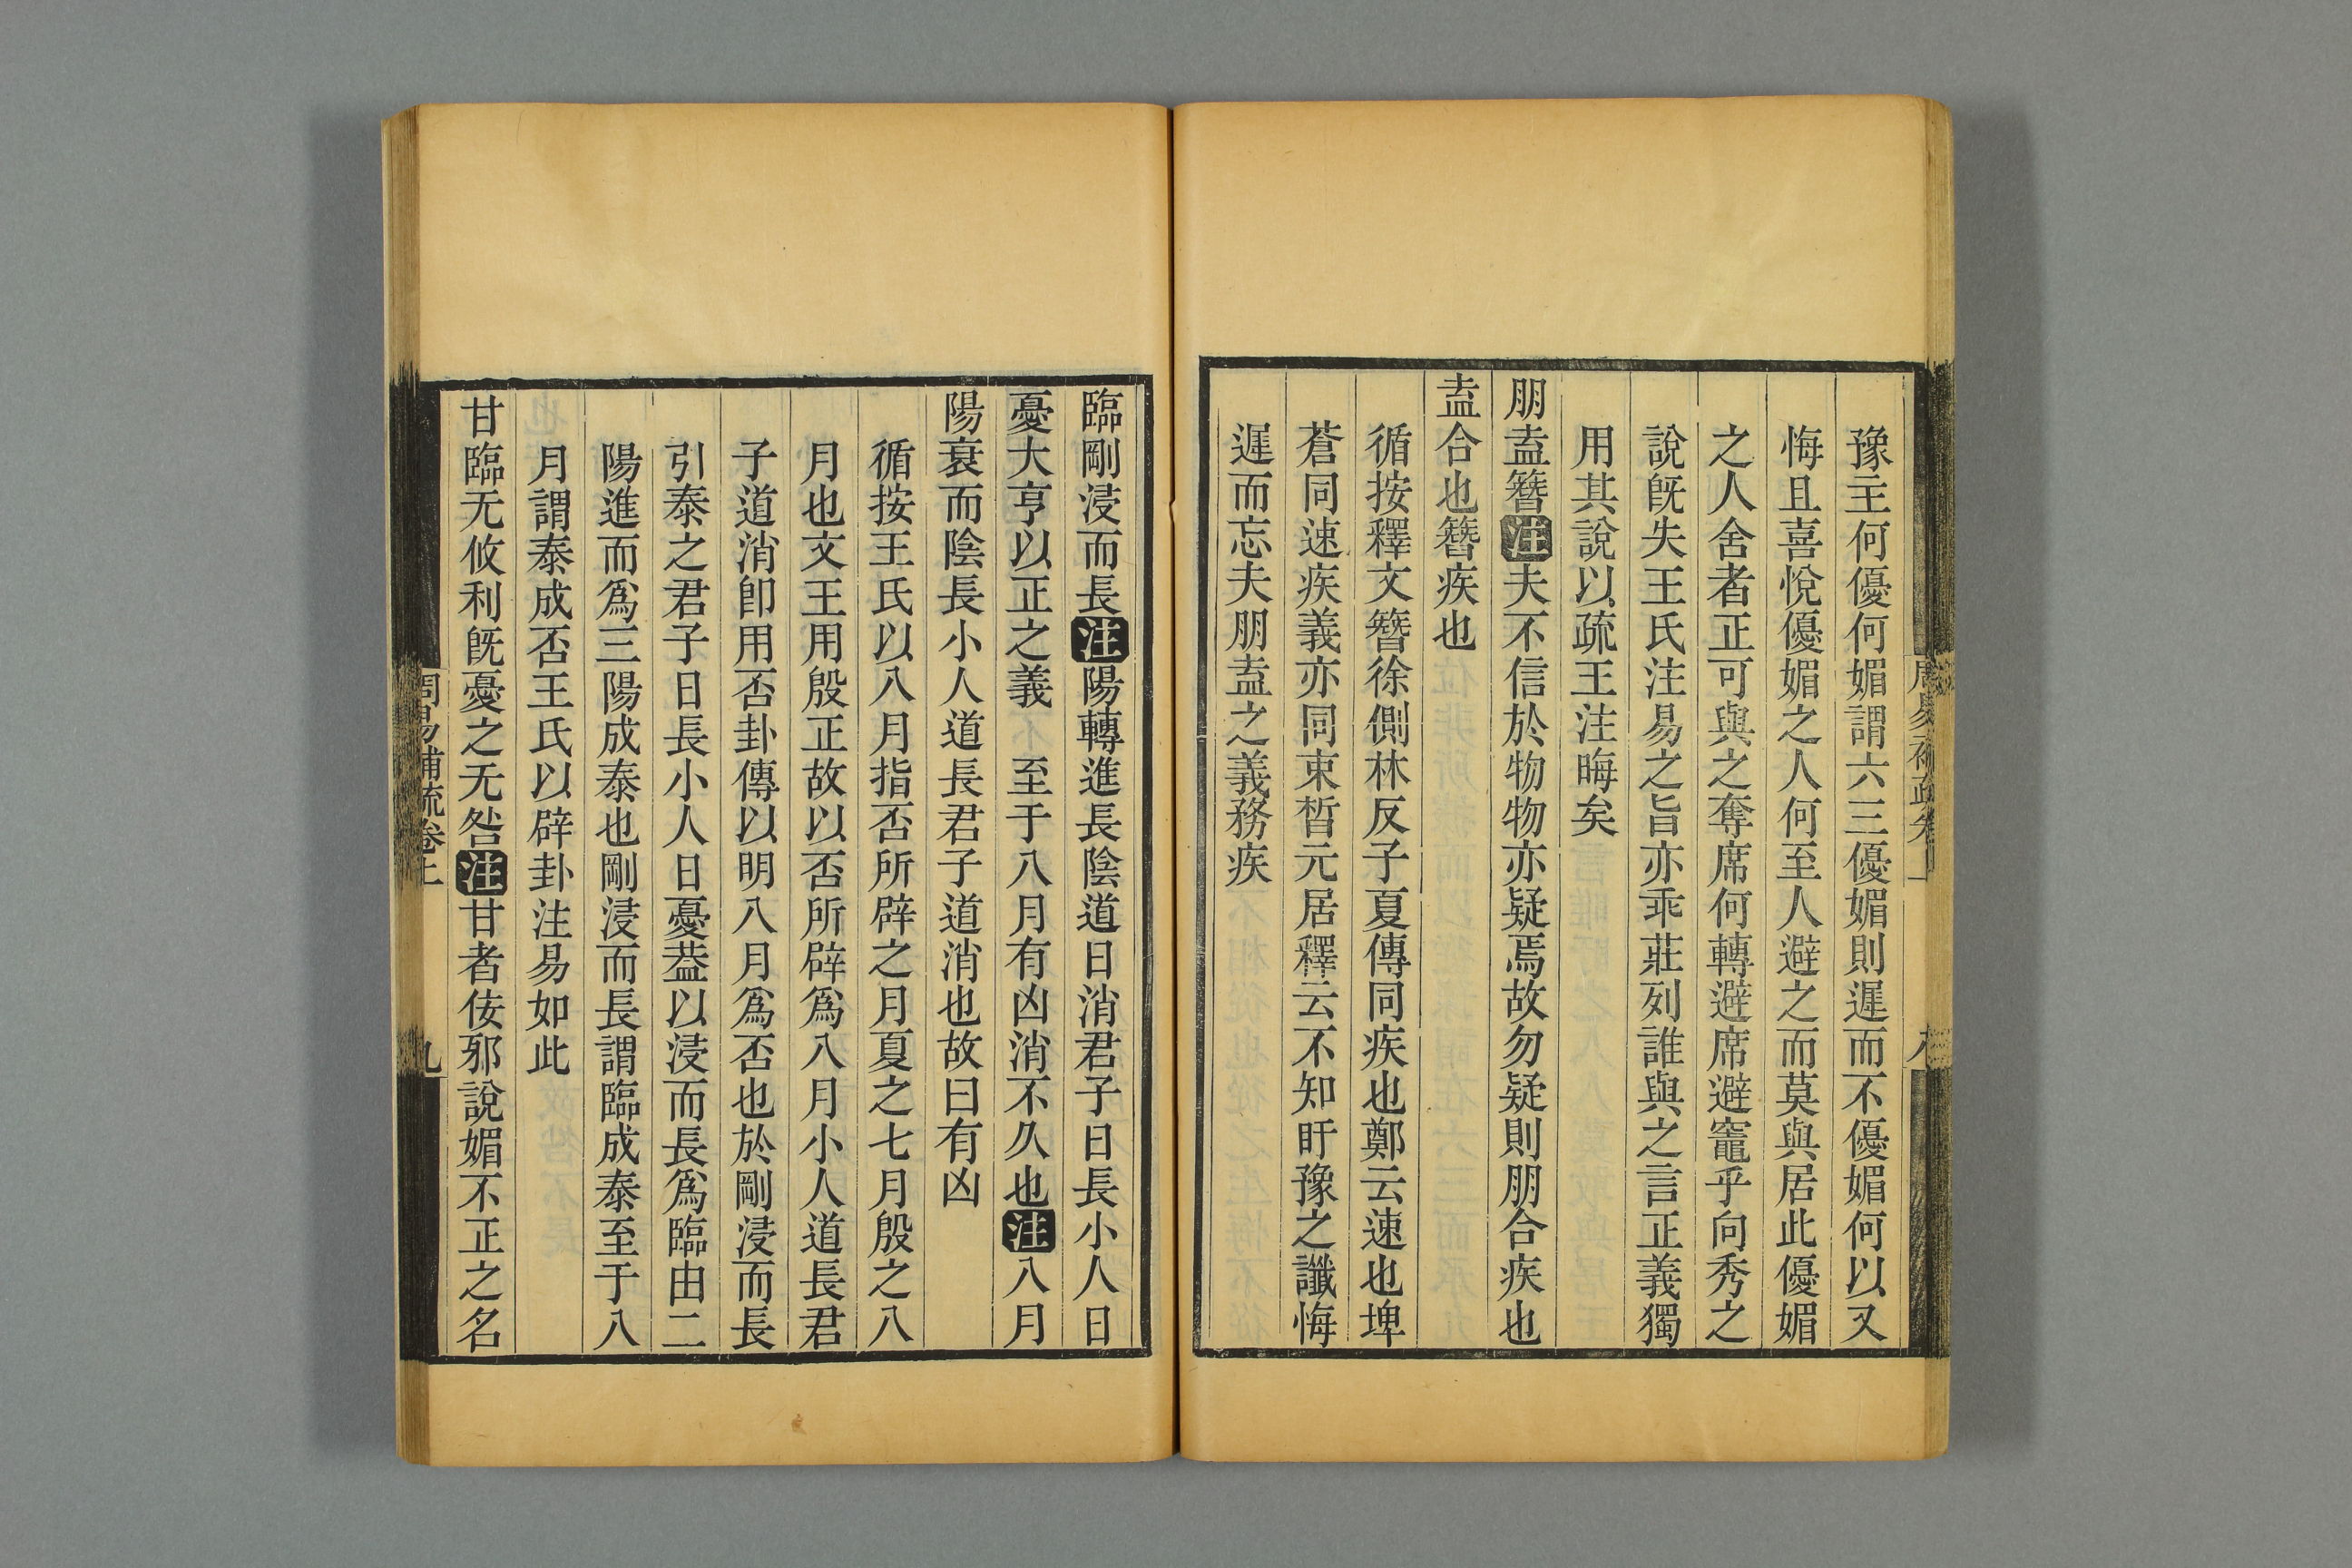 周易補疏卷上
八
豫主何優何媚謂六三優媚則遲而不優媚何以又
悔且喜悅優媚之人何至人避之而莫與居此優媚
之人舍者正可與之奪席何轉避席避竈乎向秀之
說旣失王氏注易之旨亦乖莊列誰與之言正義獨
用其說以疏王注晦矣
朋盍簪注夫不信於物物亦疑焉故勿疑則朋合疾也
盍合也簪疾也
循按釋文簪徐側林反子夏傳同疾也鄭云速也埤
蒼同速疾義亦同束皙元居釋云不知盱豫之讖悔
遲而忘夫朋盍之義務疾
臨剛浸而長注陽轉進長陰道日消君子日長小人日
憂大亨以正之義 至于八月有凶消不久也注八月
陽衰而陰長小人道長君子道消也故曰有凶
循按王氏以八月指否所辟之月夏之七月殷之八
月也文王用殷正故以否所辟爲八月小人道長君
子道消卽用否卦傳以明八月爲否也於剛浸而長
引泰之君子日長小人日憂葢以浸而長爲臨由二
陽進而爲三陽成泰也剛浸而長謂臨成泰至于八
月謂泰成否王氏以辟卦注易如此
甘臨无攸利旣憂之无咎注甘者佞邪說媚不正之名
周易補疏卷上
九